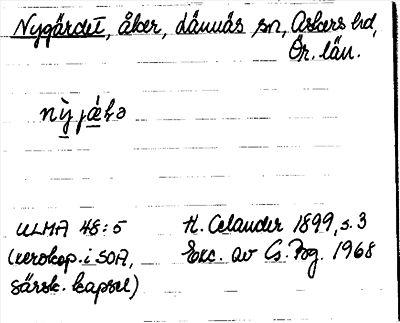 Nygärdet, åker, Lännäs sn, Askers hd,
Ör. län.
nỳjǽɫə
ULMA 48:5 H. Celander 1899, s. 3
(xerokop. i SOA, Exc. av Cs. Bg. 1968
särsk. kapsel)